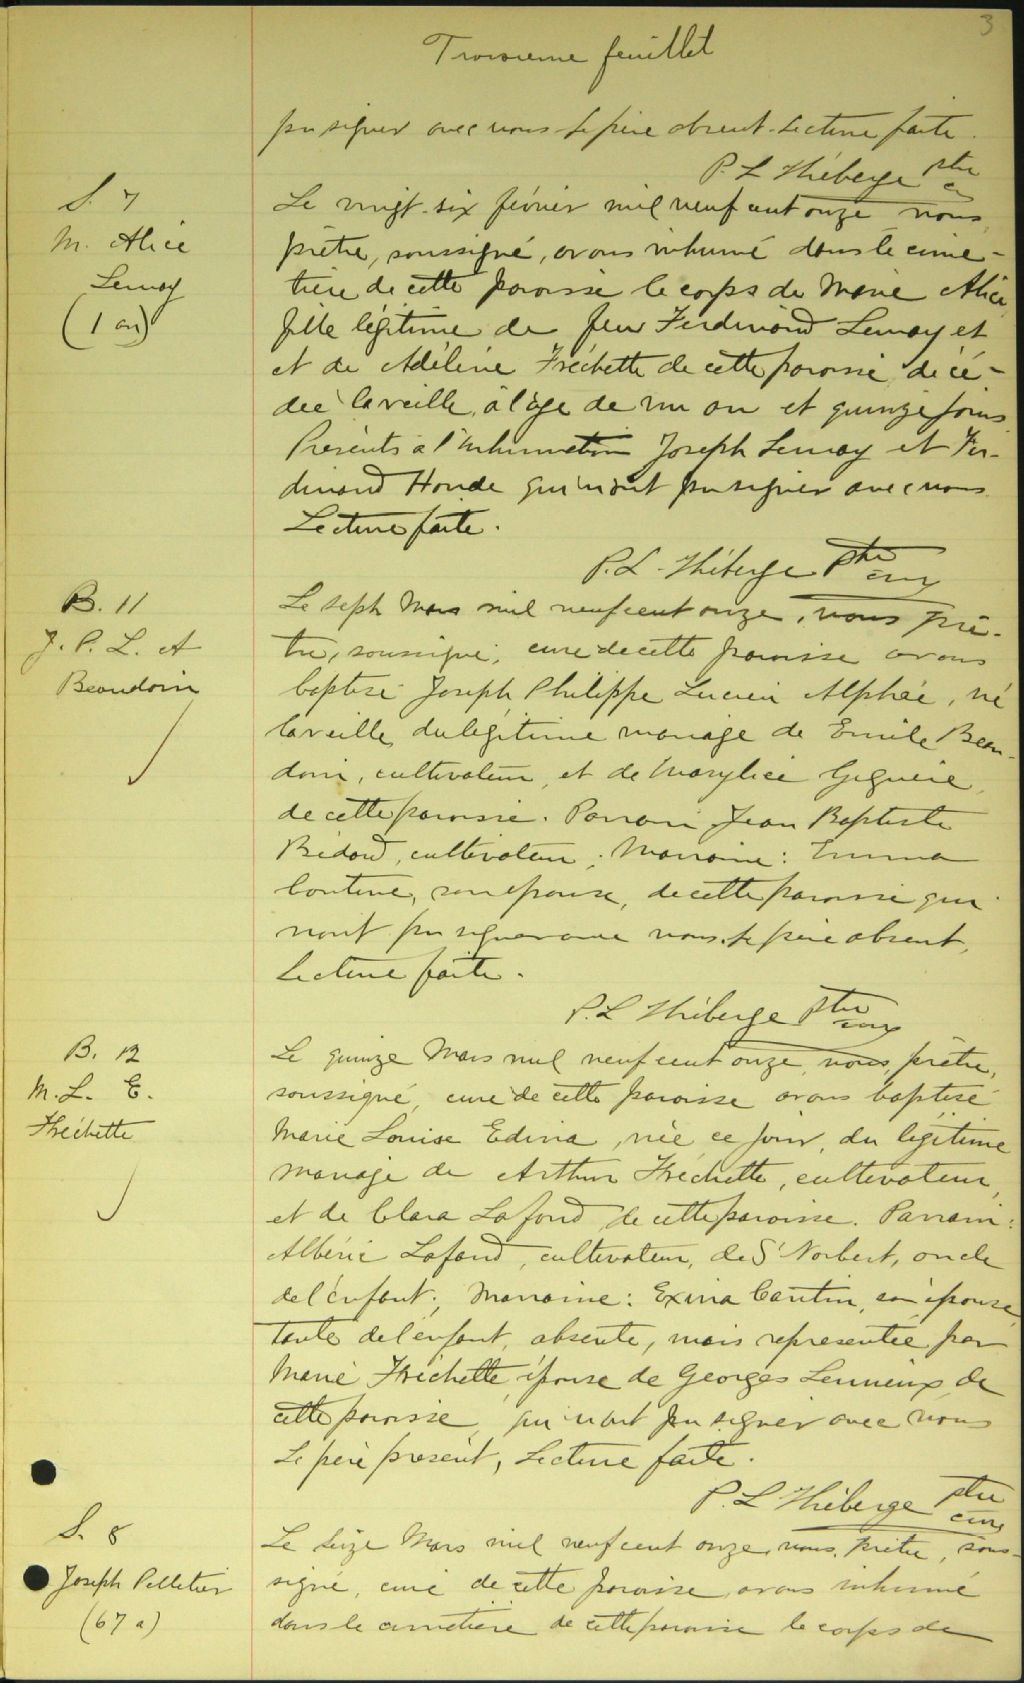 3
Troisieme feuillet
pu signer avec nous. Le père absent. Lecture faite.
P. L Théberge ptre
S. 7
M. Alice
Lemay
(1 an)
Le vingt-six février mil neuf cent onze nous,
prêtre, soussigné, avons inhumé dans le cime-
tière de cette paroisse le corps de Marie Alice
fille légitime de feu Ferdinand Lemay et
et de Adéline Fréchette de cette paroisse, décé-
dée la veille, à l'âge de un an et quinze jours
Présents à l'inhumation Joseph Lemay et Fer-
dinand Houde qui n'ont pu signer avec nous.
Lecture faite.
P. L. Théberge ptre
curé
B. 11
J. P. L. A
Beaudoin
Le sept Mars mil neuf cent onze, nous prê-
tre, soussigné, curé de cette paroisse avons
baptisé Joseph Philippe Lucien Alphée, né
la veille, du légitime mariage de Emile Beau-
doin, cultivateur, et de Giguère,
de cette paroisse. Parrain Jean Baptiste
Bédard, cultivateur; Marraine: Emma
son épouse, de cette paroisse qui
n'ont pu signer avec nous. Le père absent,
Lecture faite.
P. L Théberge ptre
curé
B. 12
M. L. E.
Fréchette
Le quinze Mars mil neuf cent onze, nous, prêtre,
soussigné, curé de cette paroisse avons baptisé
Marie Louise Edina, née ce jour, du légitime
mariage de Arthur Fréchette, cultivateur,
et de Clara Lafond de cette paroisse. Parrain:
Albéric Lafond, cultivateur, de St Norbert, oncle
de l'enfant; Marraine: Exina Cantin, son épouse,
tante de l'enfant, absente, mais representée par
Marie Fréchette, épouse de Georges Lemieux de
cette paroisse, qui n'ont pu signer avec nous
Le père présent, Lecture faite.
P. L Théberge ptre
curé
S. 8
Joseph Pelletier
(67 a)
Le seize Mars mil neuf cent onze, nous, prêtre, sous-
signé, curé de cette paroisse, avons inhumé
dans le cimetière de cette paroisse le corps de